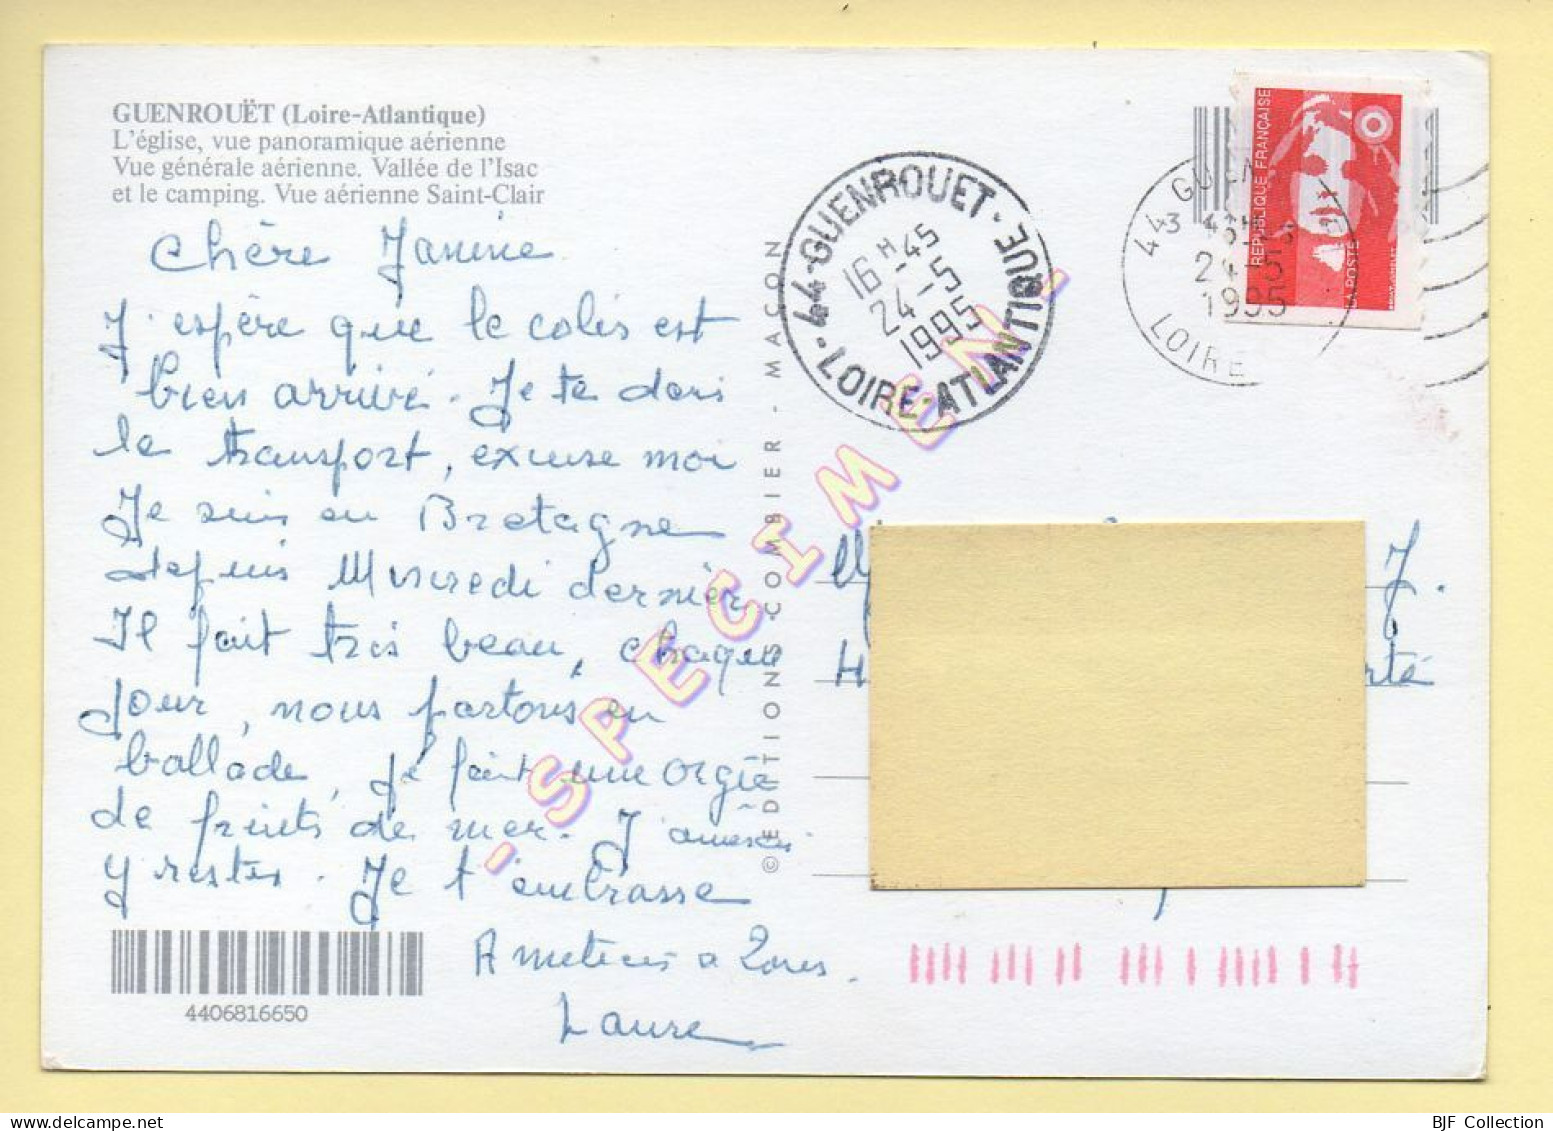 GUENROUËT (Loire-Atlantique)
L'église, vue panoramique aérienne
Vue générale aérienne. Vallée de l'Isac
et le camping. Vue aérienne Saint-Clair
Chère Janine
J'espère que le colis est
bien arrivé. Je te dois
le transport, excuse moi
Je suis en Bretagne
depuis Mercredi dernier
Il fait très beau, chaque
jour, nous partons en
ballade, je fait une orgie
de fruits de mer. J'aimerais
y rester. Je t'embrasse
Laure
4406816650
© EDITIONS COMBIER - MACON
- SPECIMEN -
44 - GUENROUET - LOIRE-ATLANTIQUE
16 H 45
24 - 5
1995
44 GUEN
24-5
1995
LOIRE
REPUBLIQUE FRANÇAISE
LA POSTE
J.
H
rté
BJF Collection